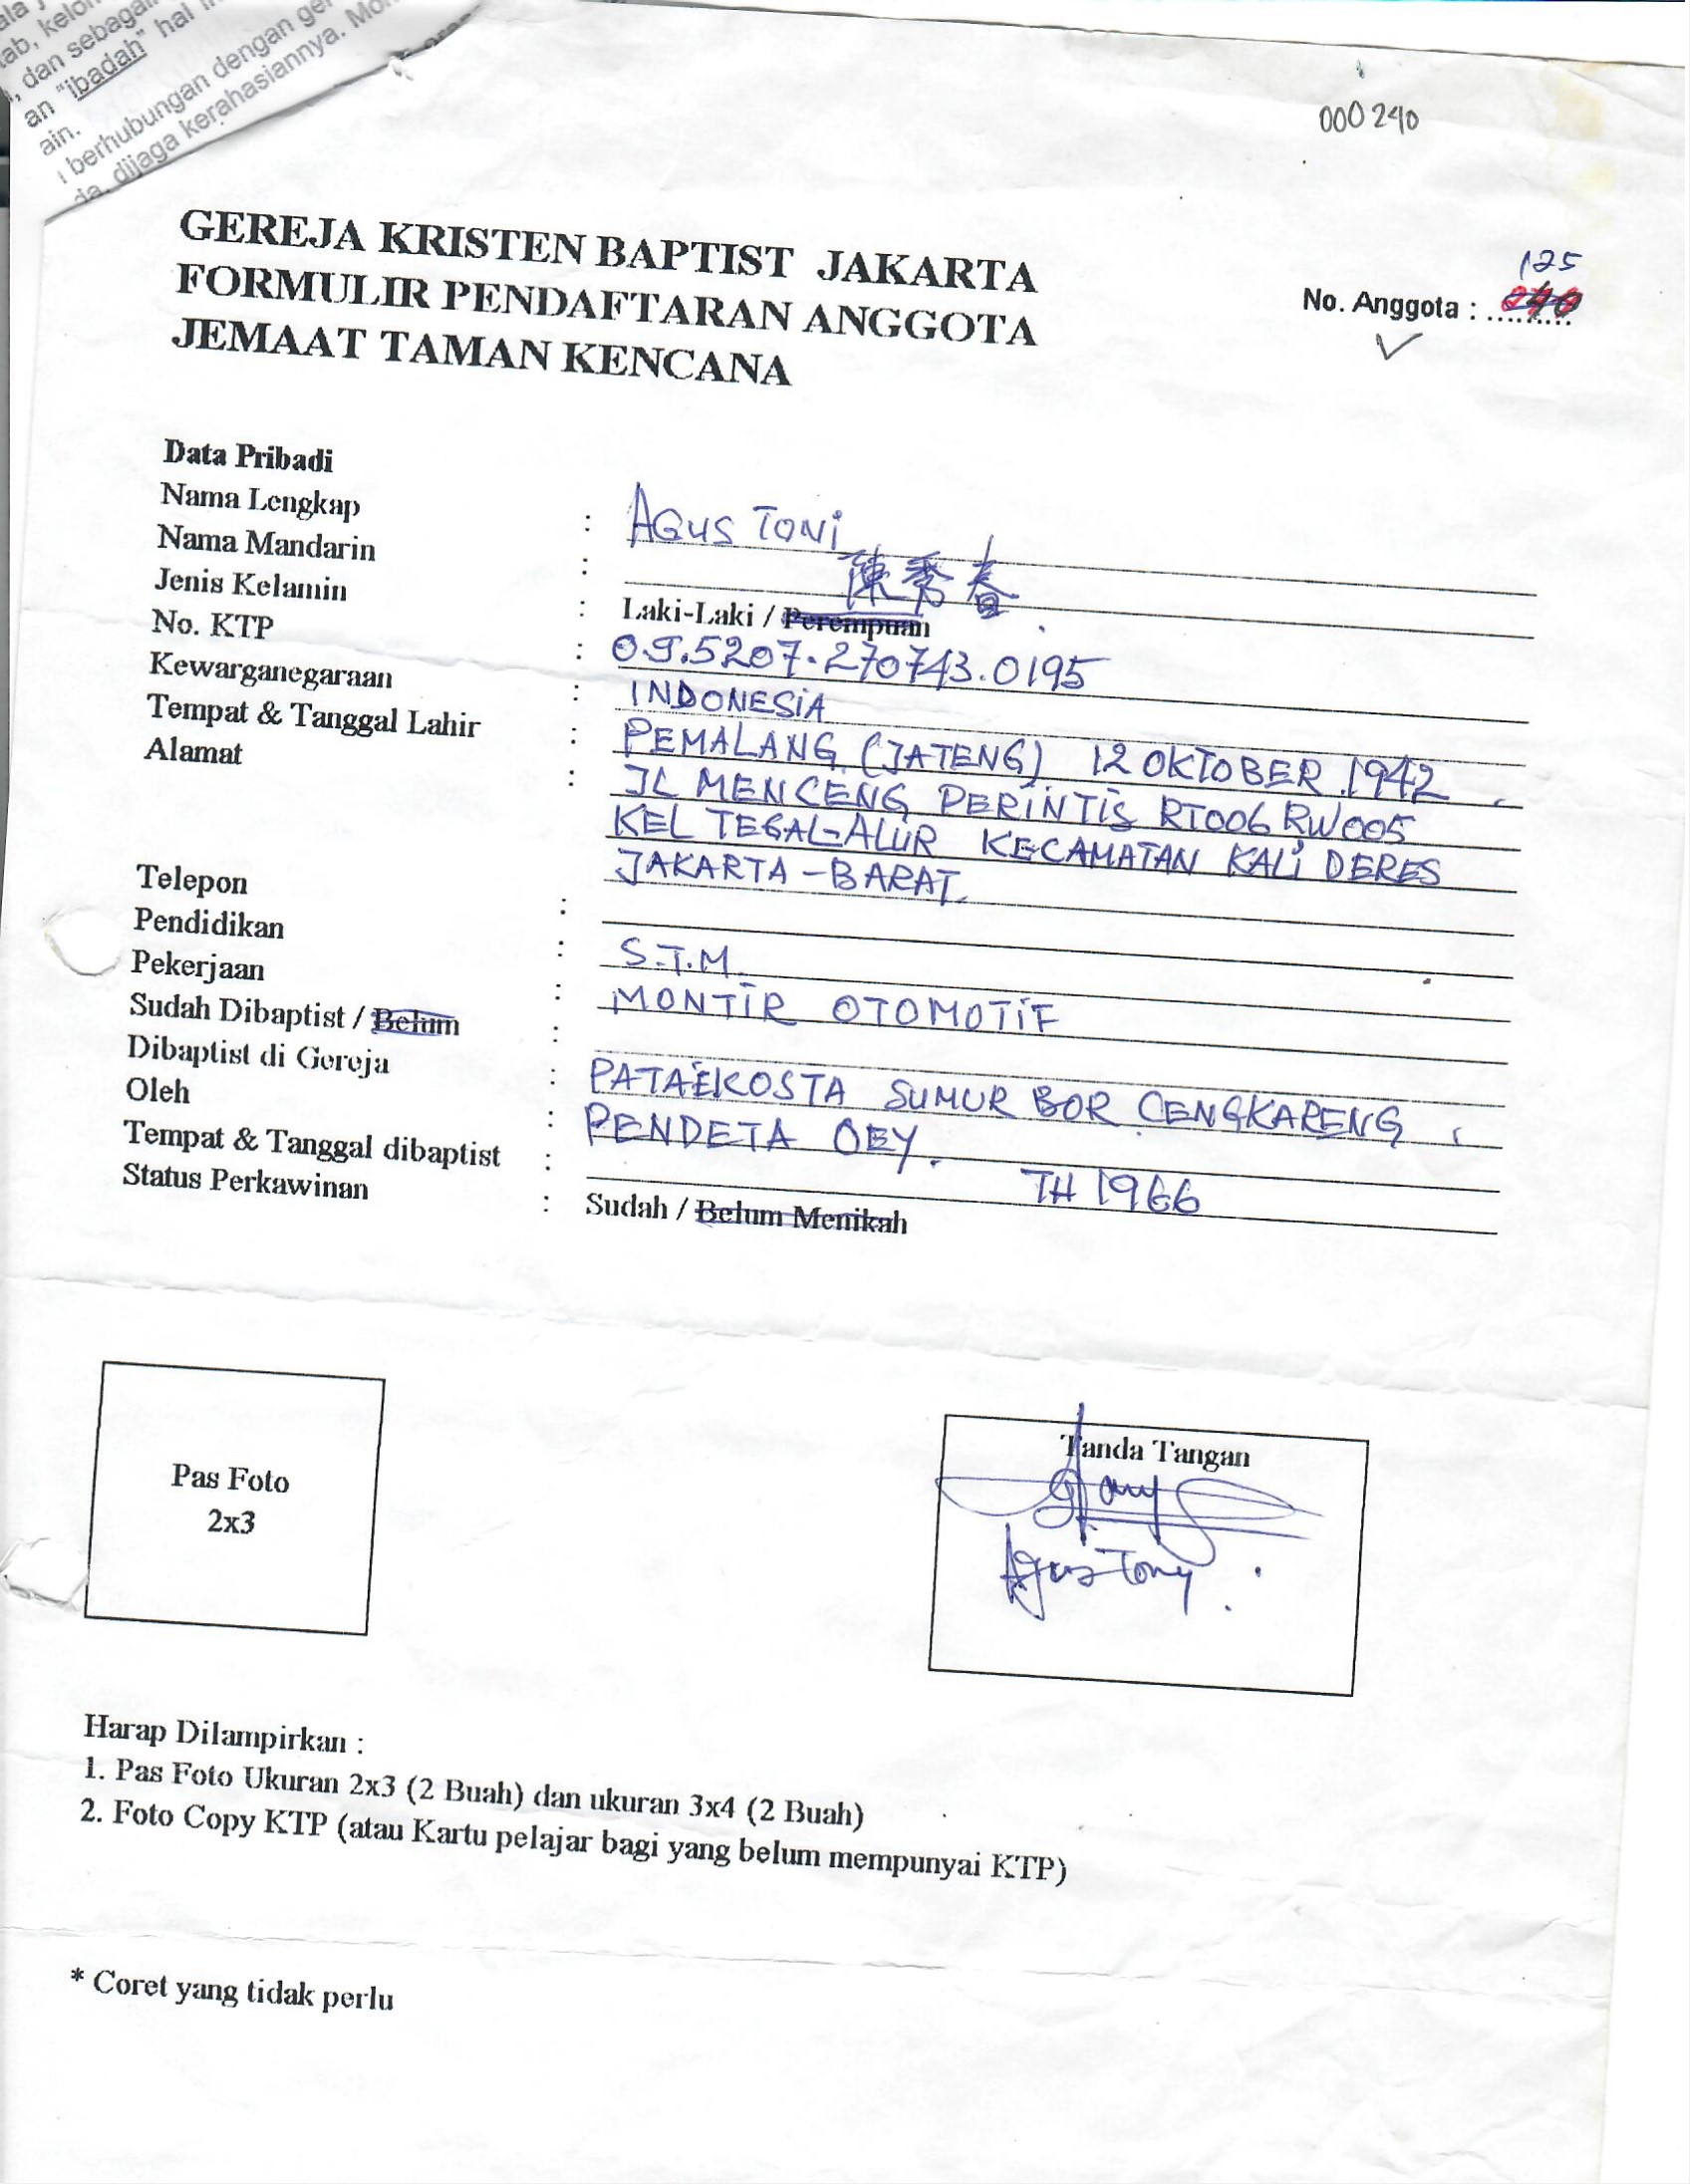 ab, kelom
, dan sebagai
an "ibadah" hal
ain.
berhubungan dengan ger
da. dijaga kerahasiannya. Moh
000240
GEREJA KRISTEN BAPTIST JAKARTA
FORMULIR PENDAFTARAN ANGGOTA
JEMAAT TAMAN KENCANA
125
No. Anggota :
Data Pribadi
Nama Lengkap : AGUS TONI
Nama Mandarin : 陳秀春
Jenis Kelamin : Laki-Laki / Perempuan
No. KTP : 09.5207.270743.0195
Kewarganegaraan : INDONESIA
Tempat & Tanggal Lahir : PEMALANG (JATENG) 12 OKTOBER 1942
Alamat : JL MENCENG PERINTIS RT006 RW005
KEL TEGAL-ALUR KECAMATAN KALI DERES
JAKARTA-BARAT.
Telepon :
Pendidikan : S.T.M.
Pekerjaan : MONTIR OTOMOTIF
Sudah Dibaptist / Belum :
Dibaptist di Gereja : PATAEKOSTA SUMUR BOR CENGKARENG
Oleh : PENDETA OEY.
Tempat & Tanggal dibaptist : TH 1966
Status Perkawinan : Sudah / Belum Menikah
Pas Foto
2x3
Tanda Tangan
Agus Tony
Harap Dilampirkan :
1. Pas Foto Ukuran 2x3 (2 Buah) dan ukuran 3x4 (2 Buah)
2. Foto Copy KTP (atau Kartu pelajar bagi yang belum mempunyai KTP)
* Coret yang tidak perlu